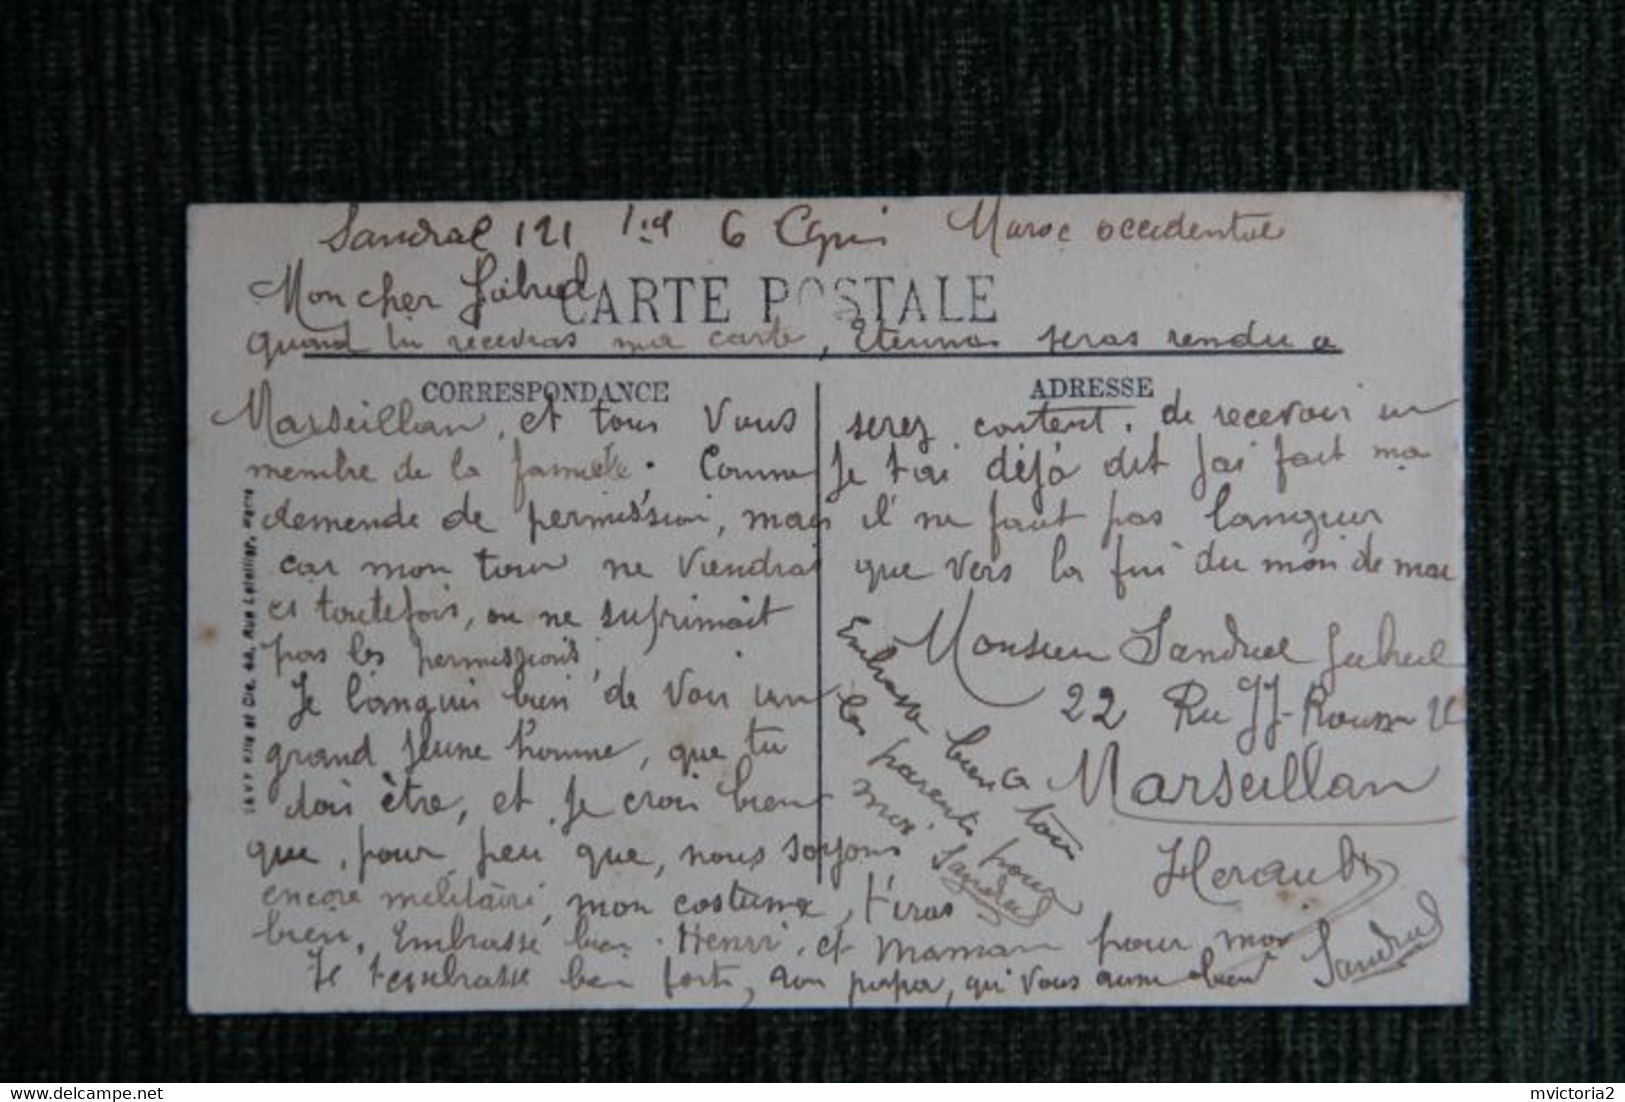 Sandral 121 6 Maroc occidental
Mon cher Gabriel
CARTE POSTALE
quand tu recevras ma carte, seras rendu a
CORRESPONDANCE
ADRESSE
Marseillan, et tous vous serez content, de recevoir un
membre de la famille. Comme Je t'ai déjà dit J'ai fait ma
demende de permission, mais il ne faut pas languir
car mon tour ne viendrai que vers la fin du moi de mar
et toutefois, on ne suprimait
pas les permissions,
Je languis bien de voir un
grand Jeune homme, que tu
dois être, et Je crois bien
que, pour peu que, nous soyons
encore militaire, mon costume, t'iras
bien. Embrasse bien Henri, et Maman pour moi
Je t'embrasse bien fort, ton papa, qui vous aime bien Sandral
Embrasse bien a tous
les parents pour
moi Sandral
Monsieur Sandral Gabriel
22 Ru JJ-Rousseau
Marseillan
Herault
48, Rue Letellier, Paris
www.delcampe.net
mvictoria2